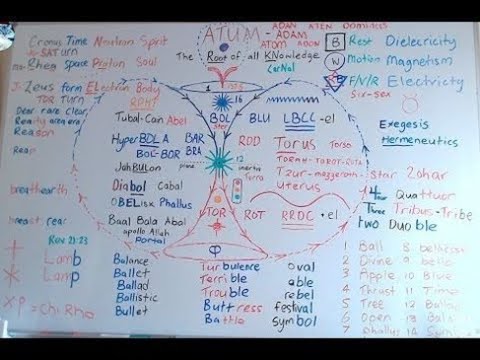 ATUM - ADAM
ADAN ATEN Dominus
ATOM ADON
The Root of all KNowledge
CarNal
Cronus Time Neutron Spirit
SATurn
Rhea space Proton Soul
Zeus form ELectron Body
TOR Turn
Dear rare clear
Ready area era
Reason
Reap
breathearth
breast rear
Rov 21:23
Lamb
Lamp
XP = Chi Rho
B Rest Dielecricity
W Motion Magnetism
F/N/R Electricty
Six-sex
Exegesis
Hermeneutics
1
16
Tubal-Cain Abel
BOL
BLU
LBCC-el
HyperBOLA BAR
BOC-BOR BRA
JahBULon
Diabol Cabal
OBELisk Phallus
Baal Bala Abal
apollo Allah
Portal
ROD
Torus Torso
TORAH-TAROT-ROTA
Tzur-mazzeroth-star Zohar
uterus
prana
12
inertia
Terra
TOR
ROT
RRDC-el
φ
14 Four Quattuor
Three Tribus-Tribe
Two Double
Balance
Ballet
Ballad
Ballistic
Bullet
Turbulence
Terrible
Trouble
Buttress
Battle
Oval
able
rebel
festival
symbol
1 Ball 8
2 Divine 9 belle
3 Apple 10 Blue
4 Thrust 11 Time
5 Tree 12
6 Open 13
7 Phallus 14